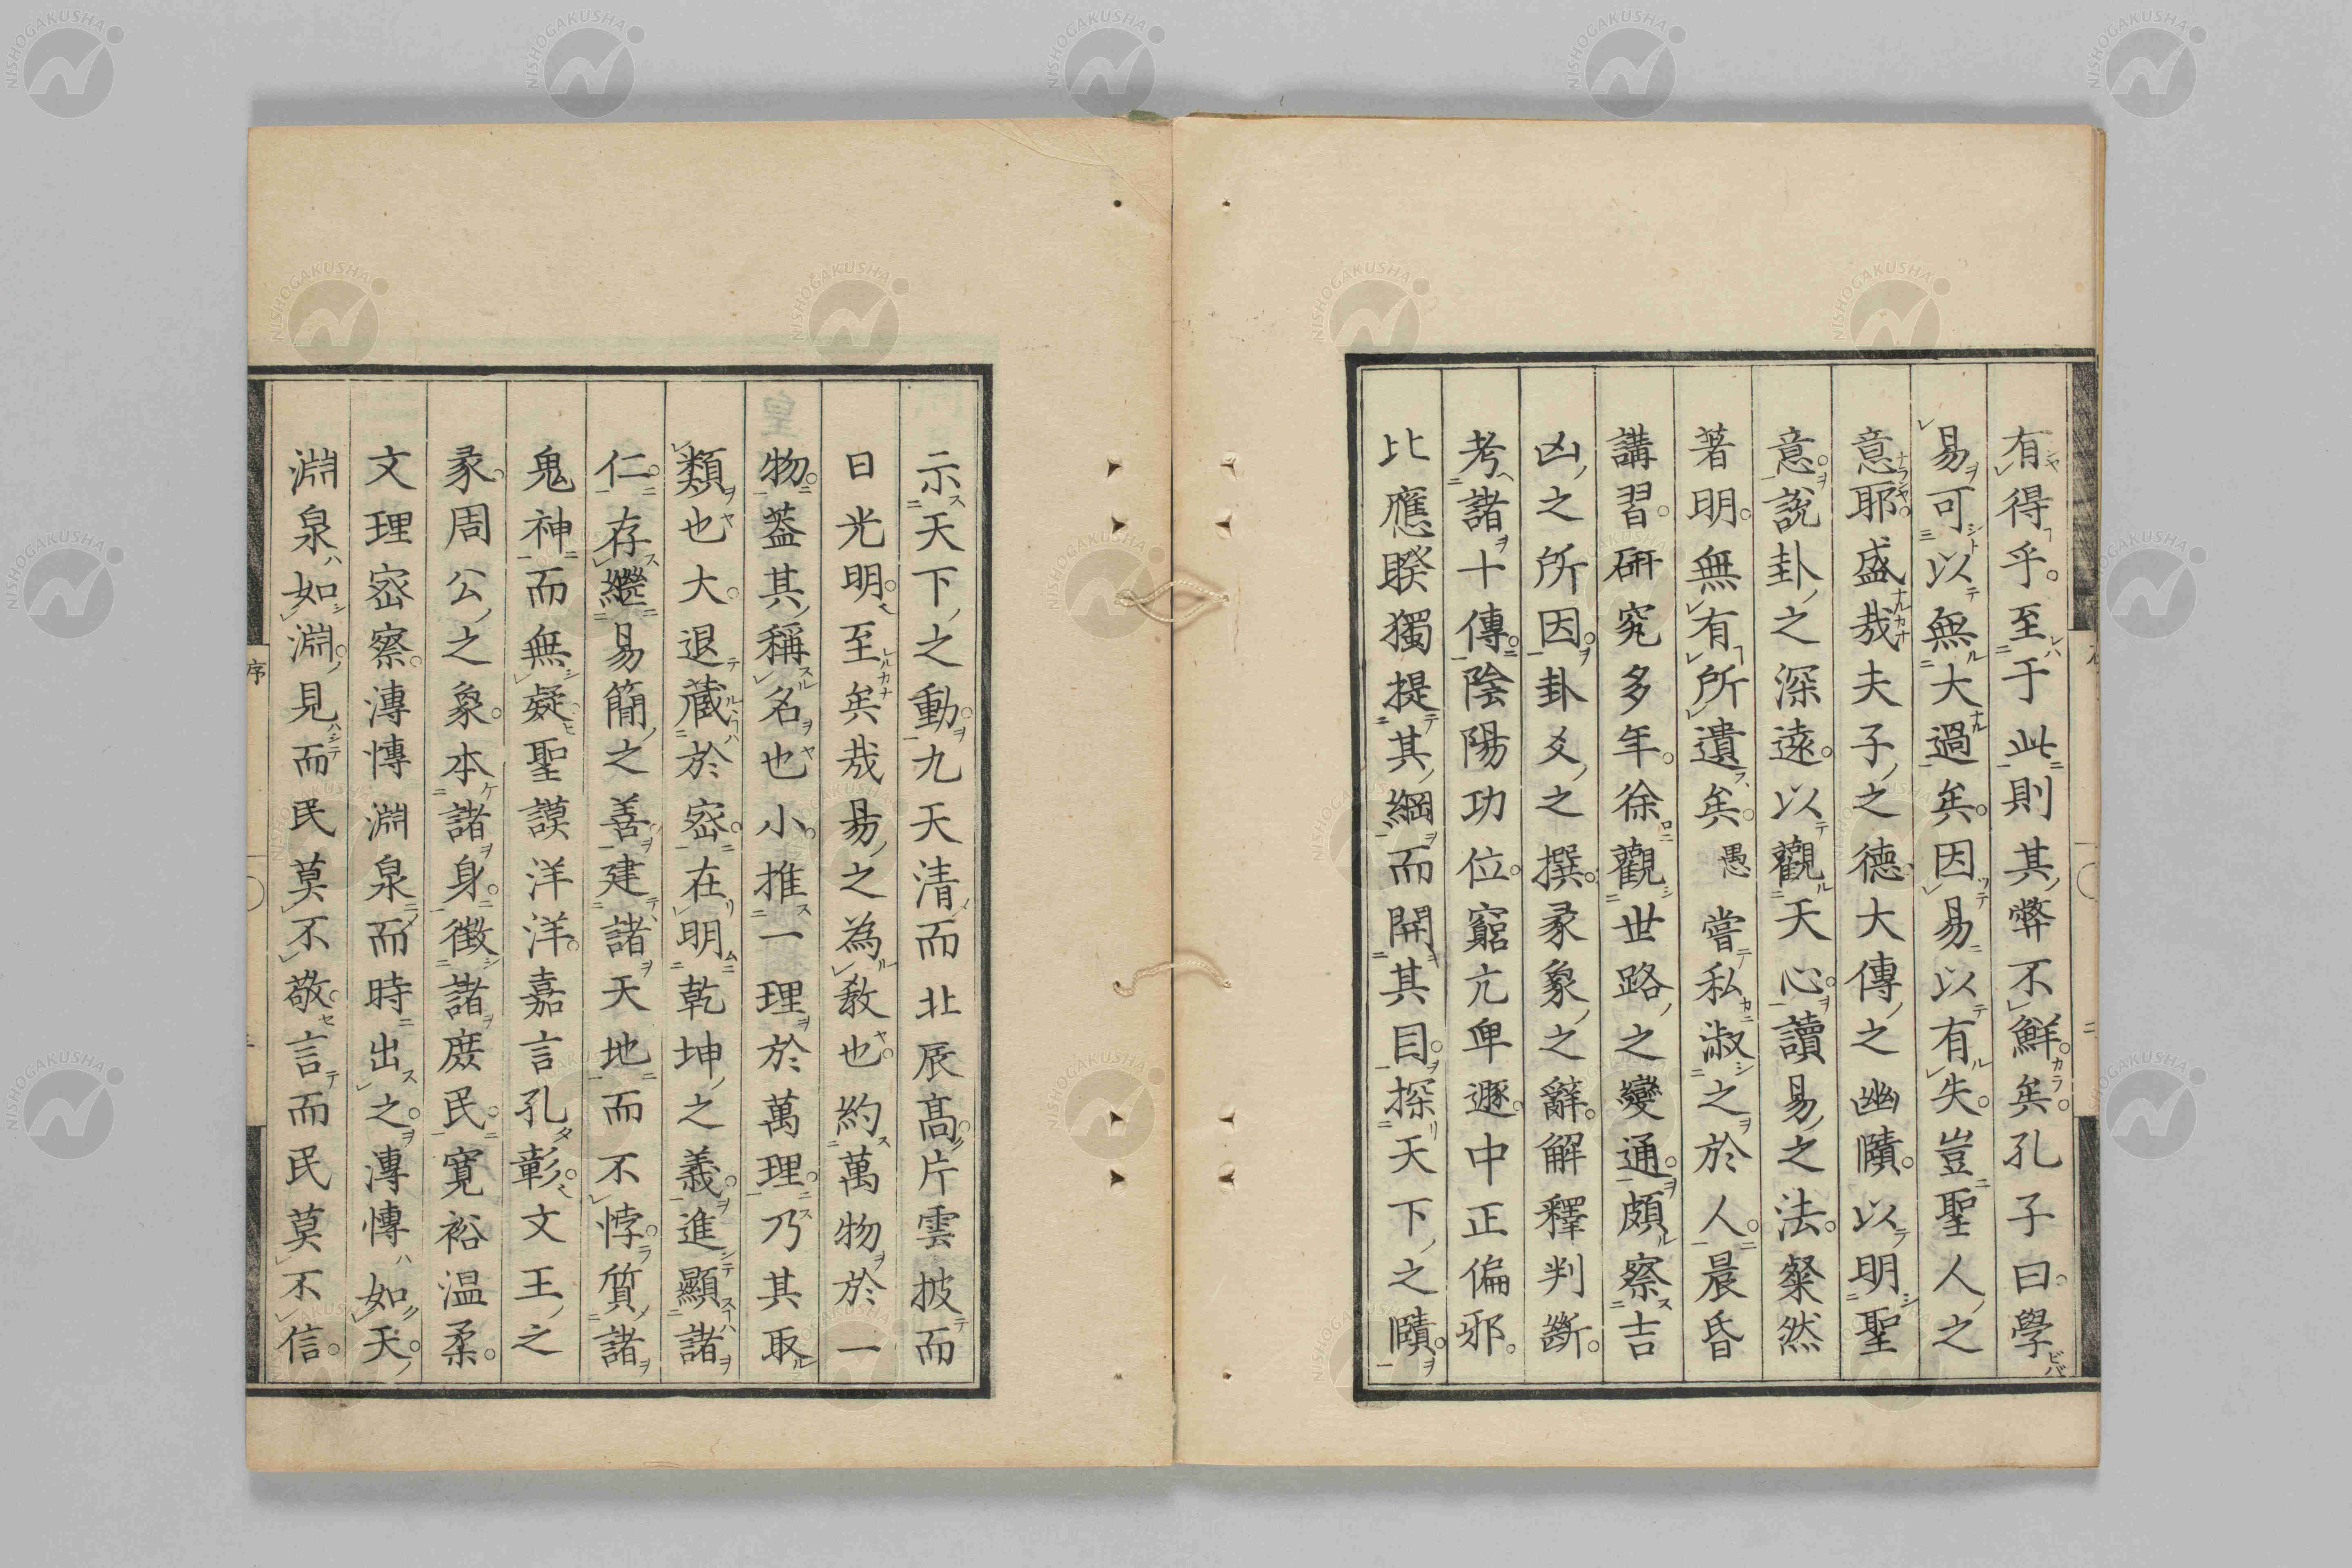 有得乎至于此則其弊不鮮矣孔子曰學
易可以無大過矣因易以有失豈聖人之
意耶盛哉夫子之德大傳之幽賾以明聖
意說卦之深遠以觀天心讀易之法粲然
著明無有所遺矣愚嘗私淑之於人晨昏
講習研究多年徐觀世路之變通頗察吉
凶之所因卦爻之撰彖象之辭解釋判斷
考諸十傳陰陽功位窮亢卑遯中正偏邪
比應睽獨提其綱而開其目探天下之賾
示天下之動九天清而北辰髙片雲披而
日光明至矣哉易之為敎也約萬物於一
物蓋其稱名也小推一理於萬理乃其取
類也大退藏於密在明乾坤之義進顯諸
仁存繼易簡之善建諸天地而不悖質諸
鬼神而無疑聖謨洋洋嘉言孔彰文王之
彖周公之象本諸身徵諸庶民寬裕温柔
文理密察溥博淵泉而時出之溥博如天
淵泉如淵見而民莫不敬言而民莫不信
序
NISHOGAKUSHA